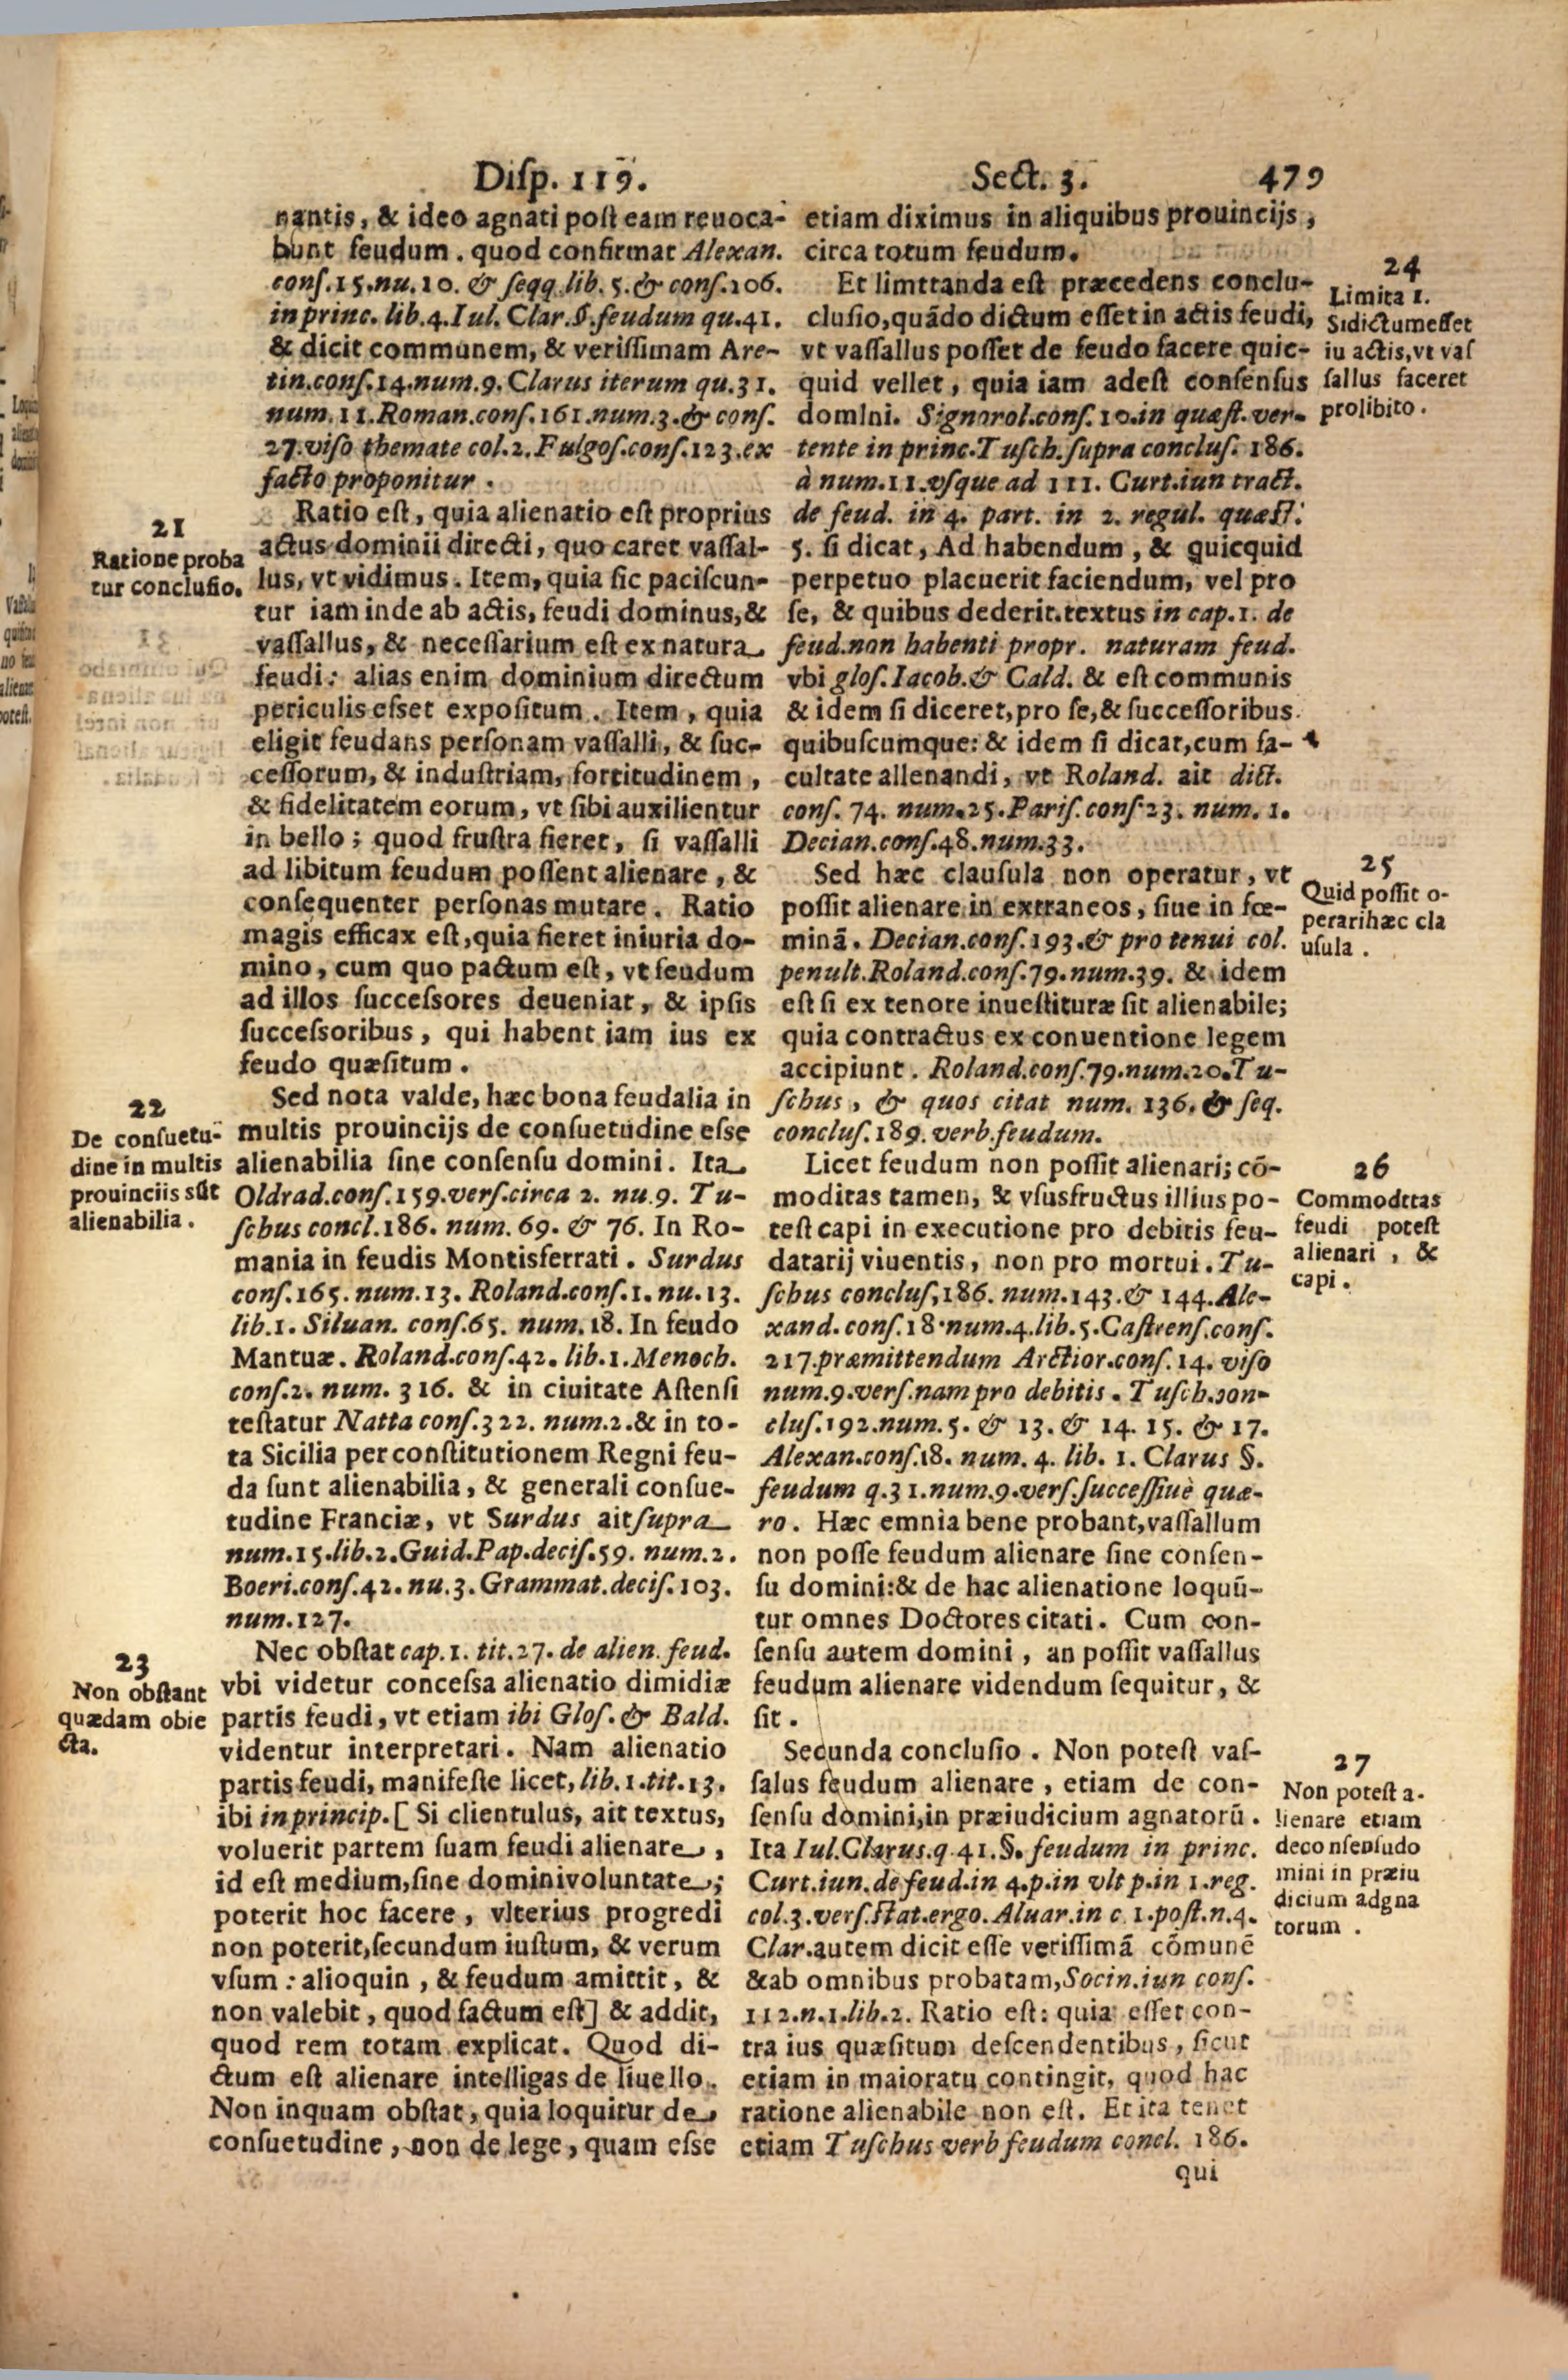 Disp. 119. Sect. 3. 479
nantis, & ideo agnati post eam reuoca-
bunt feudum. quod confirmat Alexan.
cons.15.nu.10. & seqq. lib. 5. & cons.106.
in princ. lib.4. Iul. Clar.§.feudum qu.41.
& dicit communem, & verissimam Are-
tin.cons.14.num.9. Clarus iterum qu.31.
num.11. Roman.cons.161.num.3.& cons.
27.viso themate col.2. Fulgos.cons.123.ex
facto proponitur.
21
Ratione proba
tur conclusio.
Ratio est, quia alienatio est proprius
actus dominii directi, quo caret vassal-
lus, vt vidimus. Item, quia sic paciscun-
tur iam inde ab actis, feudi dominus, &
vassallus, & necessarium est ex natura
feudi: alias enim dominium directum
periculis esset expositum. Item, quia
eligit feudans personam vassalli, & suc-
cessorum, & industriam, fortitudinem,
& fidelitatem eorum, vt sibi auxilientur
in bello; quod frustra fieret, si vassalli
ad libitum feudum possent alienare, &
consequenter personas mutare. Ratio
magis efficax est, quia fieret iniuria do-
mino, cum quo pactum est, vt feudum
ad illos successores deueniat, & ipsis
successoribus, qui habent iam ius ex
feudo quæsitum.
22
De consuetu-
dine in multis
prouinciis sūt
alienabilia.
Sed nota valde, hæc bona feudalia in
multis prouincijs de consuetudine esse
alienabilia sine consensu domini. Ita
Oldrad.cons.159.vers.circa 2. nu.9. Tu-
schus concl.186. num.69. & 76. In Ro-
mania in feudis Montisferrati. Surdus
cons.165. num.13. Roland.cons.1. nu.13.
lib.1. Siluan. cons.65. num.18. In feudo
Mantuæ. Roland.cons.42. lib.1. Menoch.
cons.2. num. 316. & in ciuitate Astensi
testatur Natta cons.322. num.2. & in to-
ta Sicilia per constitutionem Regni feu-
da sunt alienabilia, & generali consue-
tudine Franciæ, vt Surdus ait supra
num.15.lib.2.Guid.Pap.decis.59. num.2.
Boeri.cons.42. nu.3. Grammat.decis.103.
num.127.
23
Non obstant
quædam obie
cta.
Nec obstat cap.1. tit.27. de alien. feud.
vbi videtur concessa alienatio dimidiæ
partis feudi, vt etiam ibi Glos. & Bald.
videntur interpretari. Nam alienatio
partis feudi, manifeste licet, lib.1.tit.13.
ibi in princip. [Si clientulus, ait textus,
voluerit partem suam feudi alienare,
id est medium, sine domini voluntate;
poterit hoc facere, vlterius progredi
non poterit, secundum iustum, & verum
vsum: alioquin, & feudum amittit, &
non valebit, quod factum est] & addit,
quod rem totam explicat. Quod di-
ctum est alienare intelligas de liuello.
Non inquam obstat, quia loquitur de
consuetudine, non de lege, quam esse
etiam diximus in aliquibus prouincijs,
circa totum feudum.
24
Limita 1.
Si dictum esset
iu actis, vt vas
sallus faceret
prolibito.
Et limttanda est præcedens conclu-
clusio, quādo dictum esset in actis feudi,
vt vassallus posset de feudo facere quic-
quid vellet, quia iam adest consensus
domini. Signorol.cons.10.in quæst. ver-
tente in princ. Tusch.supra conclus. 186.
à num.11.vsque ad 111. Curt.iun tract.
de feud. in 4. part. in 2. regul. quæst.
5. si dicat, Ad habendum, & quicquid
perpetuo placuerit faciendum, vel pro
se, & quibus dederit. textus in cap.1. de
feud.non habenti propr. naturam feud.
vbi glos. Iacob. & Cald. & est communis
& idem si diceret, pro se, & successoribus
quibuscumque: & idem si dicat, cum fa-
cultate allenandi, vt Roland. ait dict.
cons. 74. num.25. Paris. cons 23. num. 1.
Decian.cons.48.num.33.
25
Quid possit o-
perari hæc cla
usula.
Sed hæc clausula non operatur, vt
possit alienare in extraneos, siue in fœ-
minā. Decian.cons.193.& pro tenui col.
penult. Roland.cons.79.num.39. & idem
est si ex tenore inuestituræ sit alienabile;
quia contractus ex conuentione legem
accipiunt. Roland.cons.79.num.20. Tu-
schus, & quos citat num. 136. & seq.
conclus.189. verb.feudum.
26
Commodttas
feudi potest
alienari, &
capi.
Licet feudum non possit alienari; cō-
moditas tamen, & vsusfructus illius po-
test capi in executione pro debitis feu-
datarij viuentis, non pro mortui. Tu-
schus conclus,186. num.143.& 144. Ale-
xand. cons.18.num.4.lib.5. Castrens.cons.
217.præmittendum Arctior.cons. 14. viso
num.9.vers.nam pro debitis. Tusch.con-
clus.192.num.5. & 13. & 14. 15. & 17.
Alexan.cons.18. num. 4. lib. 1. Clarus §.
feudum q.31.num.9.vers.successiuè quæ-
ro. Hæc emnia bene probant, vassallum
non posse feudum alienare sine consen-
su domini: & de hac alienatione loquū-
tur omnes Doctores citati. Cum con-
sensu autem domini, an possit vassallus
feudum alienare videndum sequitur, &
sit.
27
Non potest a-
lienare etiam
de consensu do
mini in præiu
dicium adgna
torum.
Secunda conclusio. Non potest vas-
salus feudum alienare, etiam de con-
sensu domini, in præiudicium agnatorū.
Ita Iul.Clarus.q.41.§. feudum in princ.
Curt.iun.de feud.in 4.p.in vlt p.in 1.reg.
col.3.vers.stat.ergo. Aluar.in c.1.post.n.4.
Clar.autem dicit esse verissimā cōmunē
& ab omnibus probatam, Socin.iun cons.
112.n.1.lib.2. Ratio est: quia esset con-
tra ius quæsitum descendentibus, sicut
etiam in maioratu contingit, quod hac
ratione alienabile non est. Et ita tenet
etiam Tuschus verb feudum concl. 186.
qui